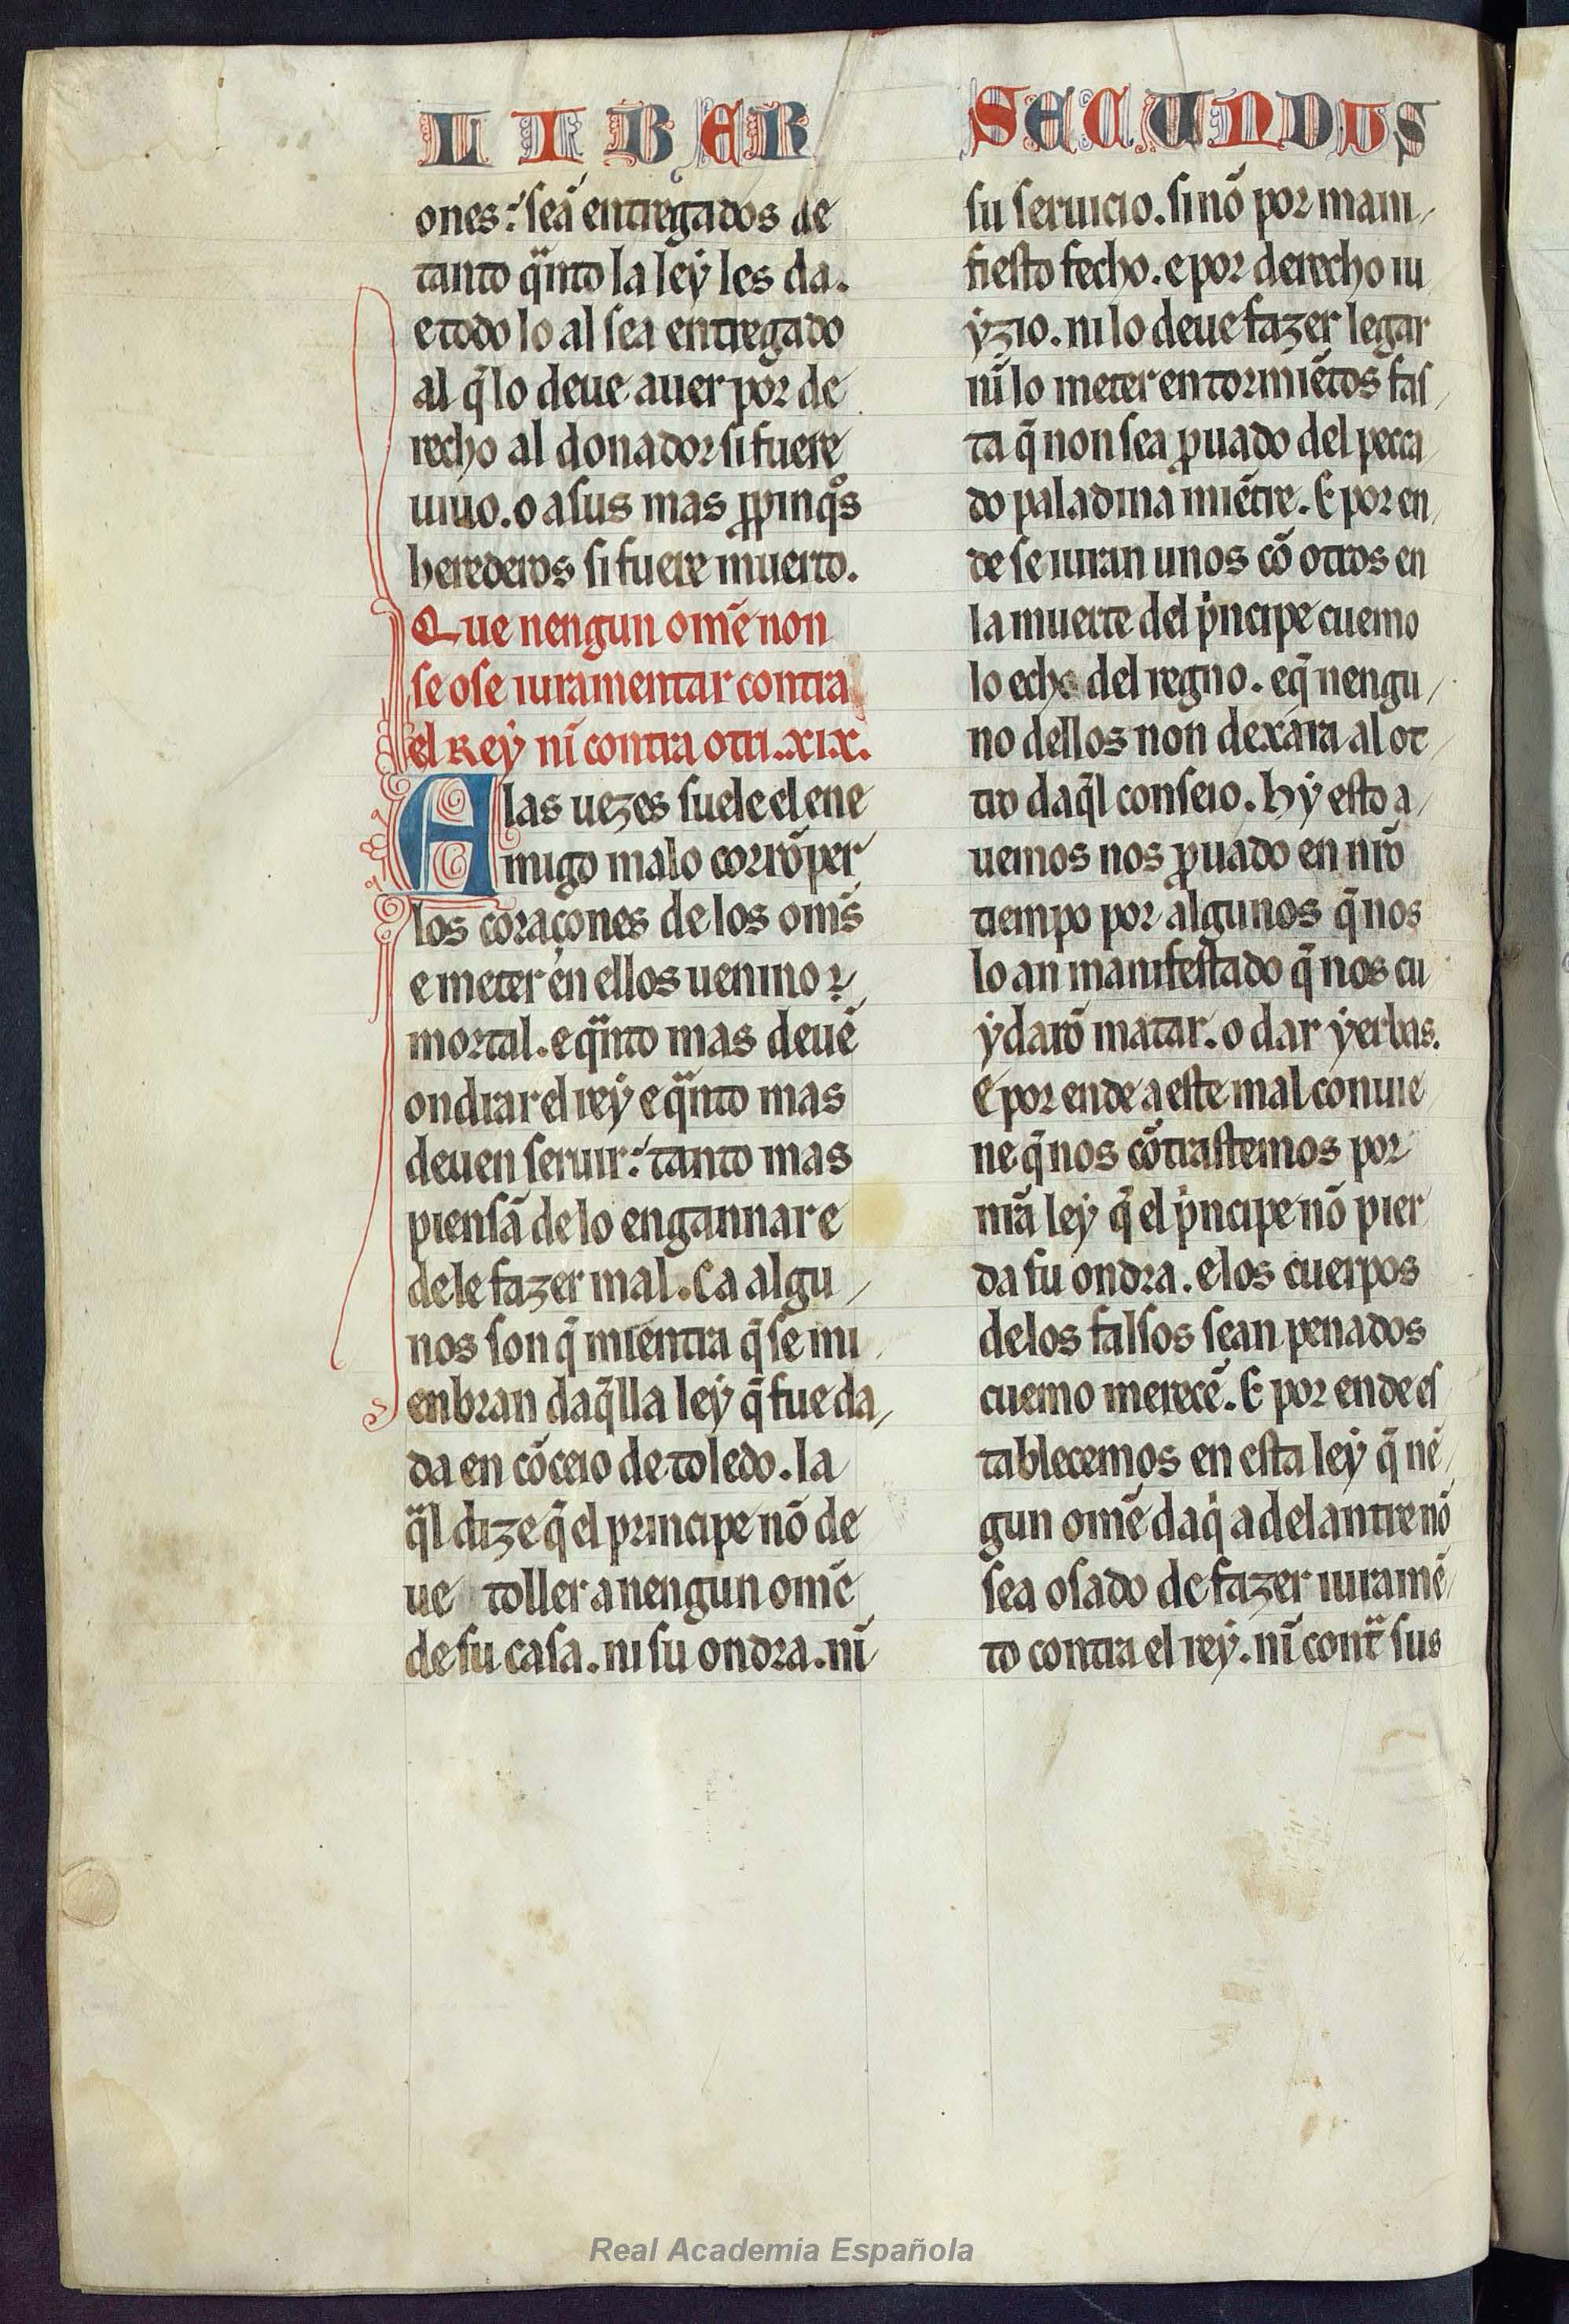 LIBER SECUNDUS
ones: seã entregados de
tanto q̃nto la leẏ les da.
e todo lo al sea entregado
al q̃ lo deue auer por de
recho al donador si fuere
uiuo. o a sus mas ꝓpinq̃os
herederos si fuere muerto.
Que nengun omẽ non
se ose iuramentar contra
el Reẏ nĩ contra otri. .xix.
A las uezes suele el ene
migo malo corrõper
los coraçones de los om̃s
e meter en ellos uenino ⁊
mortal. e q̃nto mas deuẽ
ondrar el reẏ e q̃nto mas
deuen seruir: tanto mas
piensã de lo engannar e
de le fazer mal. Ca algu/
nos son q̃ mientra q̃ se mi
enbran daq̃lla leẏ q̃ fue da/
da en cõceio de toledo. la
q̃l dize q̃ el principe nõ de
ue toller a nengun omẽ
de su casa. ni su ondra. nĩ
su seruicio. si nõ por mani/
fiesto fecho. e por derecho iu
ẏzio. ni lo deue fazer legar
nĩ lo meter en tormiẽtos fas/
ta q̃ non sea ꝓuado del pecca/
do paladina miẽtre. E por en/
de se iuran unos cõ otros en
la muerte del p̉ncipe cuemo
lo echẽ del regno. e q̃ nengu/
no dellos non dexara al ot/
tro daq̃l conseio. hẏ esto a/
uemos nos ꝓuado en nr̃o
tiempo por algunos q̃ nos
lo an manifestado q̃ nos cu
ẏdarõ matar. o dar ẏerbas.
E por ende a este mal conuie
ne q̃ nos cõtrastemos por
nr̃a leẏ q̃ el p̉ncipe nõ pier
da su ondra. e los cuerpos
de los falsos sean penados
cuemo merecẽ. E por ende es
tablecemos en esta leẏ q̃ nẽ/
gun omẽ daq̉ adelantre nõ
sea osado de fazer iuramẽ/
to contra el reẏ. nĩ cont̃ sus
Real Academia Española